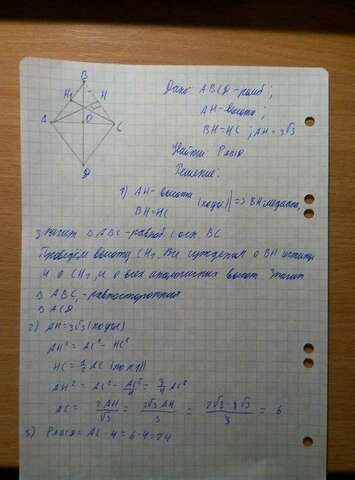 B
H₁
H
A
O
C
D
Дано: ABCD - ромб;
AH - высота;
BH = HC; AH = 3√3
Найти: P ABCD
Решение:
1) AH - высота
(по усл) => BH медиана,
BH = HC
значит △ABC - равноб. с осн. BC
Проведём высоту CH₁. Все суждения о BH истины
и о CH₁, и о всех аналогичных высот. Значит
△ABC, - равносторонние
△ACD
2) AH = 3√3 (по усл)
AH² = AC² - HC²
HC = ½ AC (по п.1)
AH² = AC² - AC²/4 = 3/4 AC²
AC = 2AH/√3 = 2√3·AH/3 = 2√3·3√3/3 = 6
3) P ABCD = AC·4 = 6·4 = 24